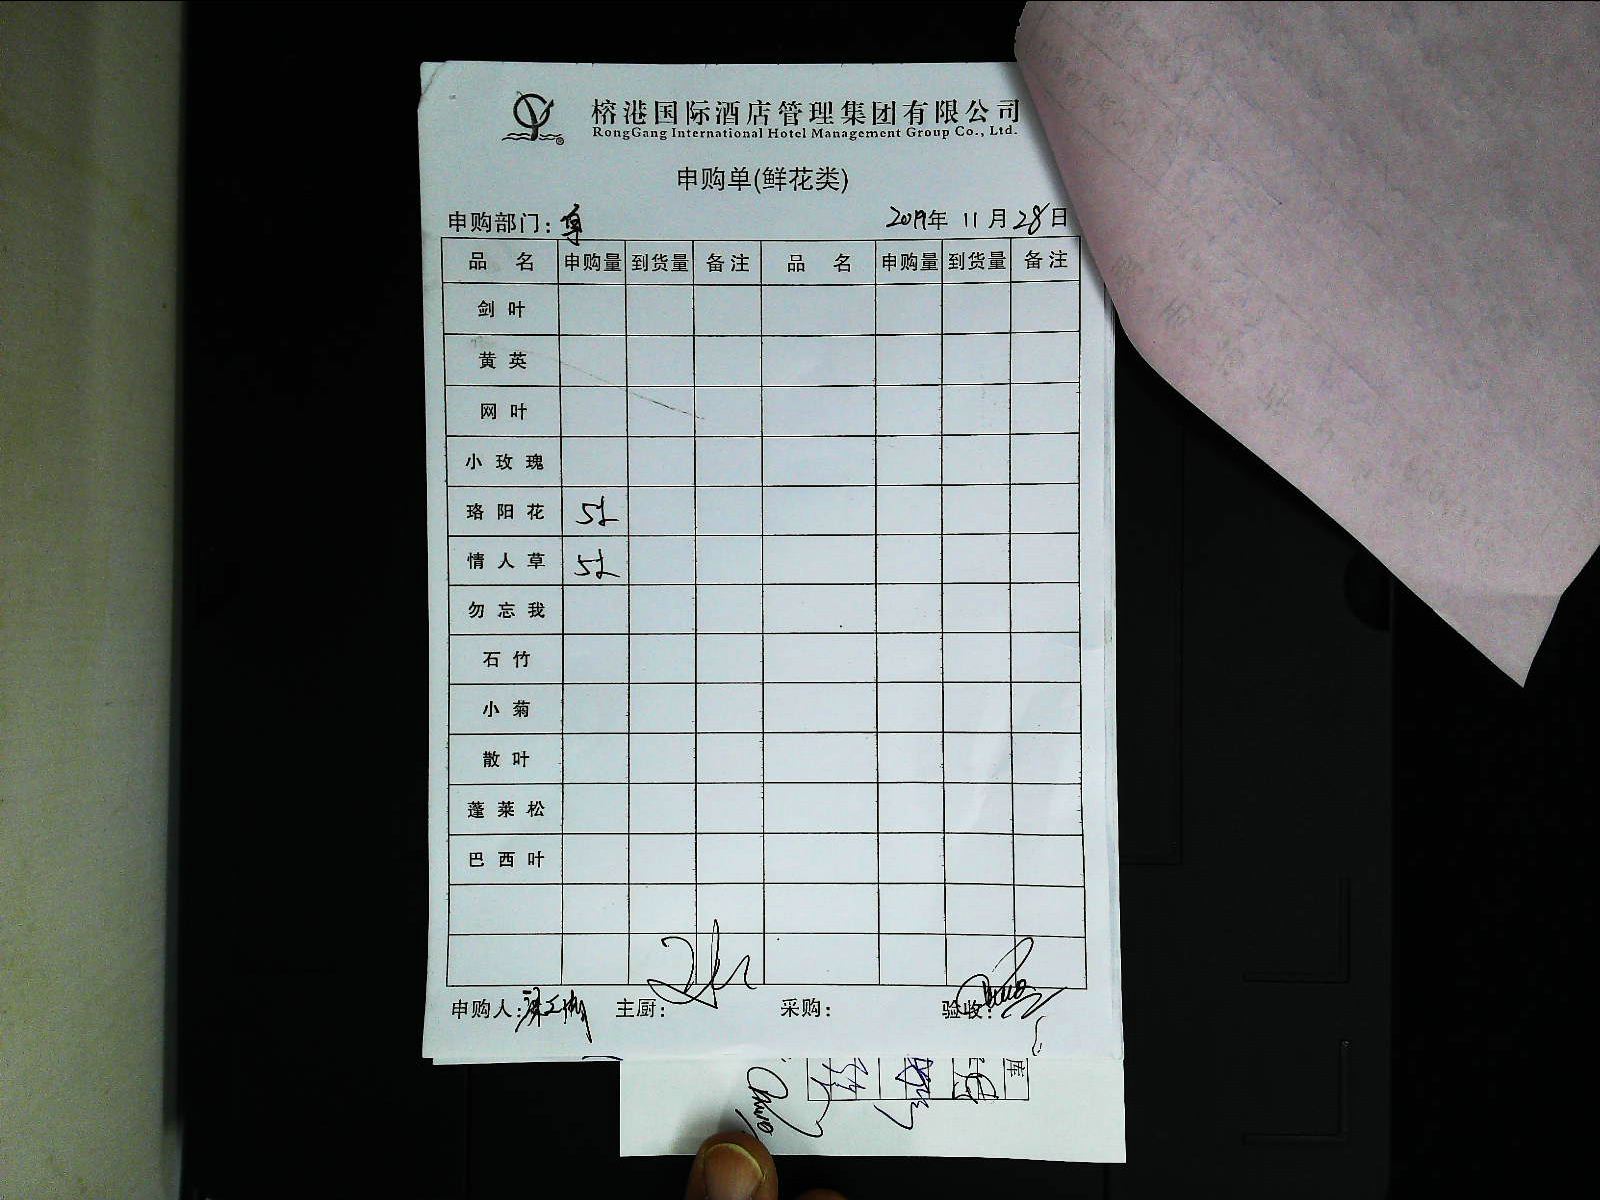 榕港国际酒店管理集团有限公司
RongGang International Hotel Management Group Co., Ltd.
申购单(鲜花类)
申购部门: 2019年 11月28日
品名 申购量 到货量 备注 品名 申购量 到货量 备注
剑叶
黄英
网叶
小玫瑰
珞阳花
情人草
勿忘我
石竹
小菊
散叶
蓬莱松
巴西叶
申购人: 主厨: 采购: 验收:
库